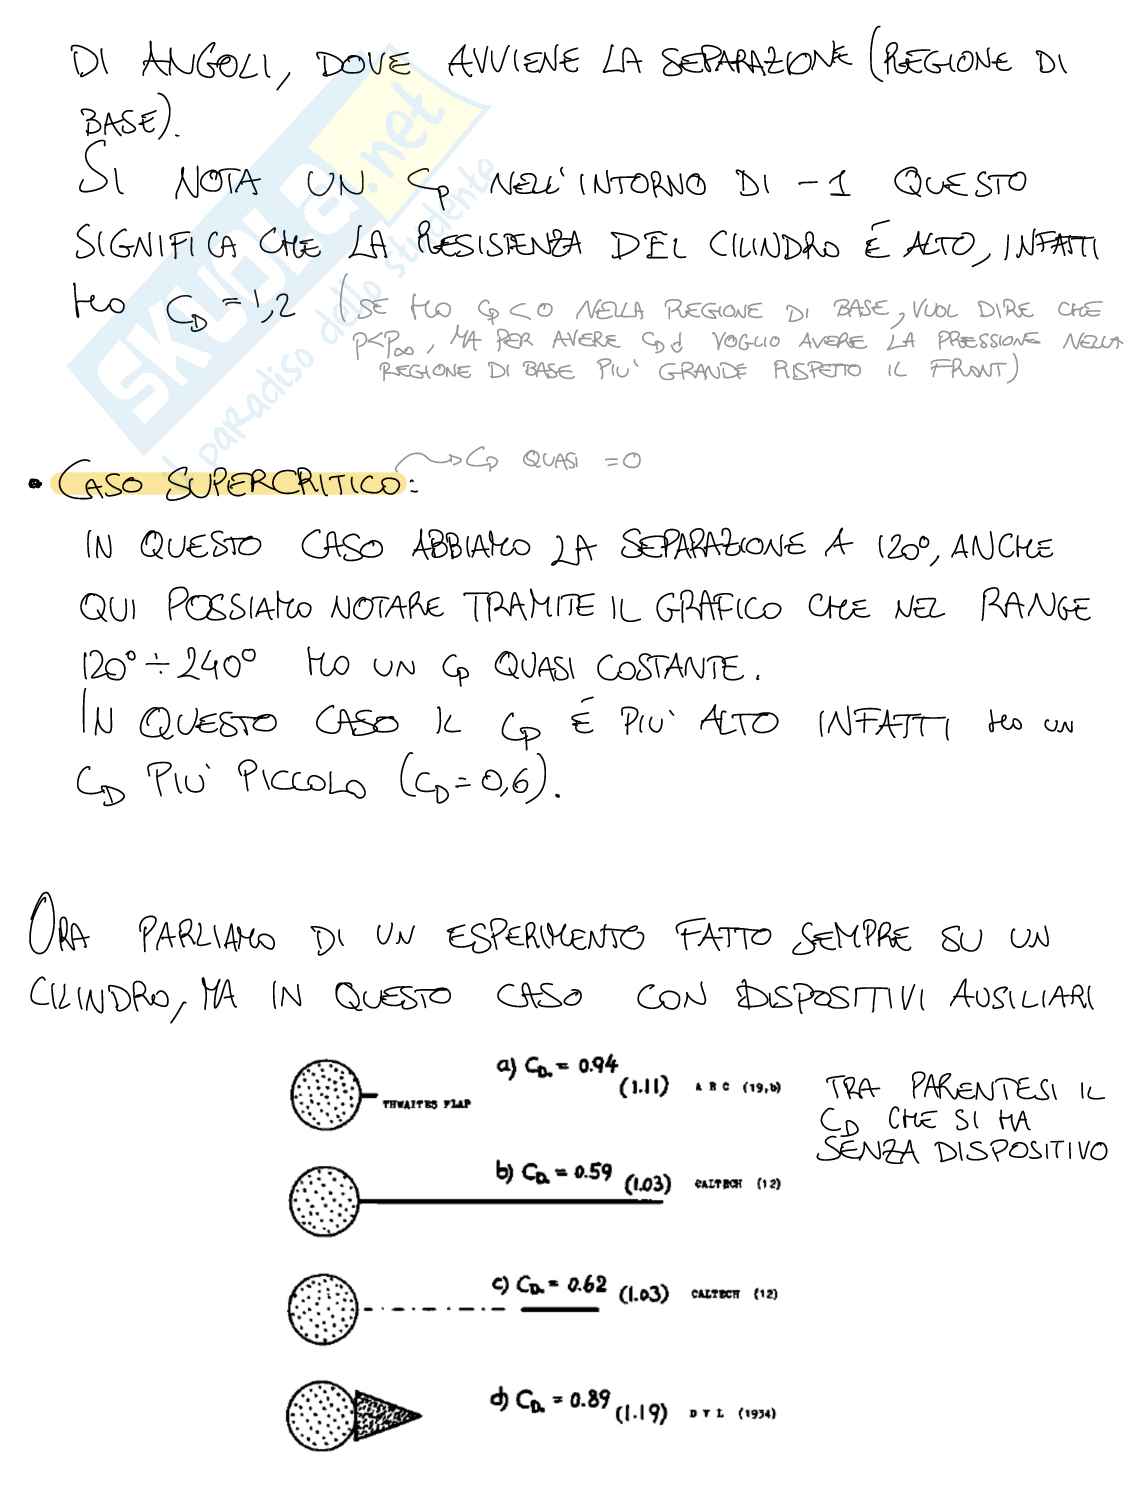 DI ANGOLI, DOVE AVVIENE LA SEPARAZIONE (REGIONE DI
BASE).
SI NOTA UN Cp NELL'INTORNO DI -1 QUESTO
SIGNIFICA CHE LA RESISTENZA DEL CILINDRO É ALTO, INFATTI
HO CD = 1,2 (SE HO Cp<0 NELLA REGIONE DI BASE, VUOL DIRE CHE
P<P∞, MA PER AVERE CD↓ VOGLIO AVERE LA PRESSIONE NELLA
REGIONE DI BASE PIU' GRANDE RISPETTO IL FRONT)
SKUOLA.net
il paradiso dello studente
→ Cp QUASI = 0
• CASO SUPERCRITICO:
IN QUESTO CASO ABBIAMO LA SEPARAZIONE A 120°, ANCHE
QUI POSSIAMO NOTARE TRAMITE IL GRAFICO CHE NEL RANGE
120° ÷ 240° HO UN Cp QUASI COSTANTE.
IN QUESTO CASO IL Cp É PIU' ALTO INFATTI HO UN
CD PIU' PICCOLO (CD=0,6).
ORA PARLIAMO DI UN ESPERIMENTO FATTO SEMPRE SU UN
CILINDRO, MA IN QUESTO CASO CON DISPOSITIVI AUSILIARI
a) CD. = 0.94 (1.11) A R C (19,b)
THWAITES FLAP
TRA PARENTESI IL
CD CHE SI HA
SENZA DISPOSITIVO
b) CD. = 0.59 (1.03) CALTECH (12)
c) CD. = 0.62 (1.03) CALTECH (12)
d) CD. = 0.89 (1.19) D V L (1934)